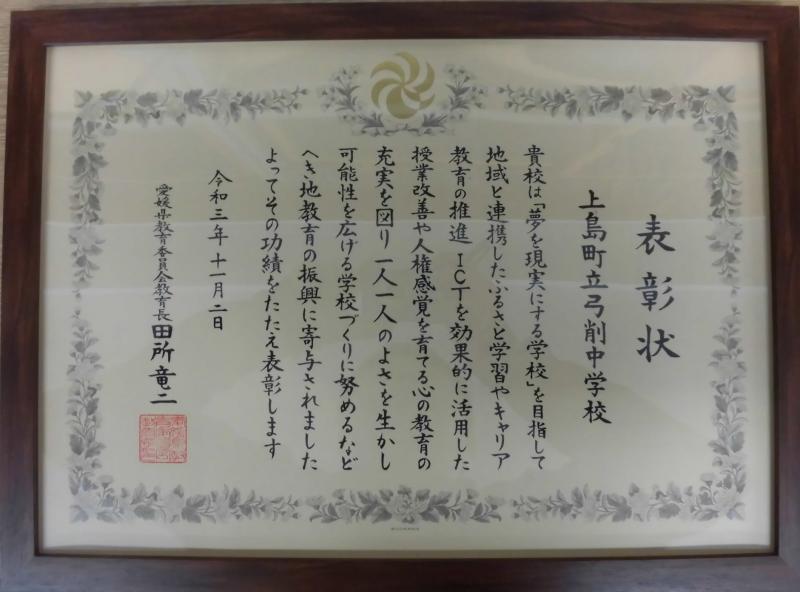 表彰状
上島町立弓削中学校
貴校は「夢を現実にする学校」を目指して
地域と連携したふるさと学習やキャリア
教育の推進 ICTを効果的に活用した
授業改善や人権感覚を育てる心の教育の
充実を図り 一人一人のよさを生かし
可能性を広げる学校づくりに努めるなど
へき地教育の振興に寄与されました
よってその功績をたたえ表彰します
令和三年十一月二日
愛媛県教育委員会教育長 田所竜二